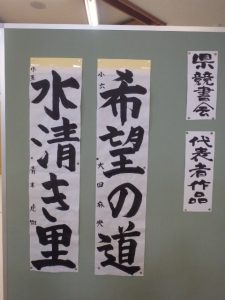 県競書会
代表者作品
希望の道
小六
大田
水清き里